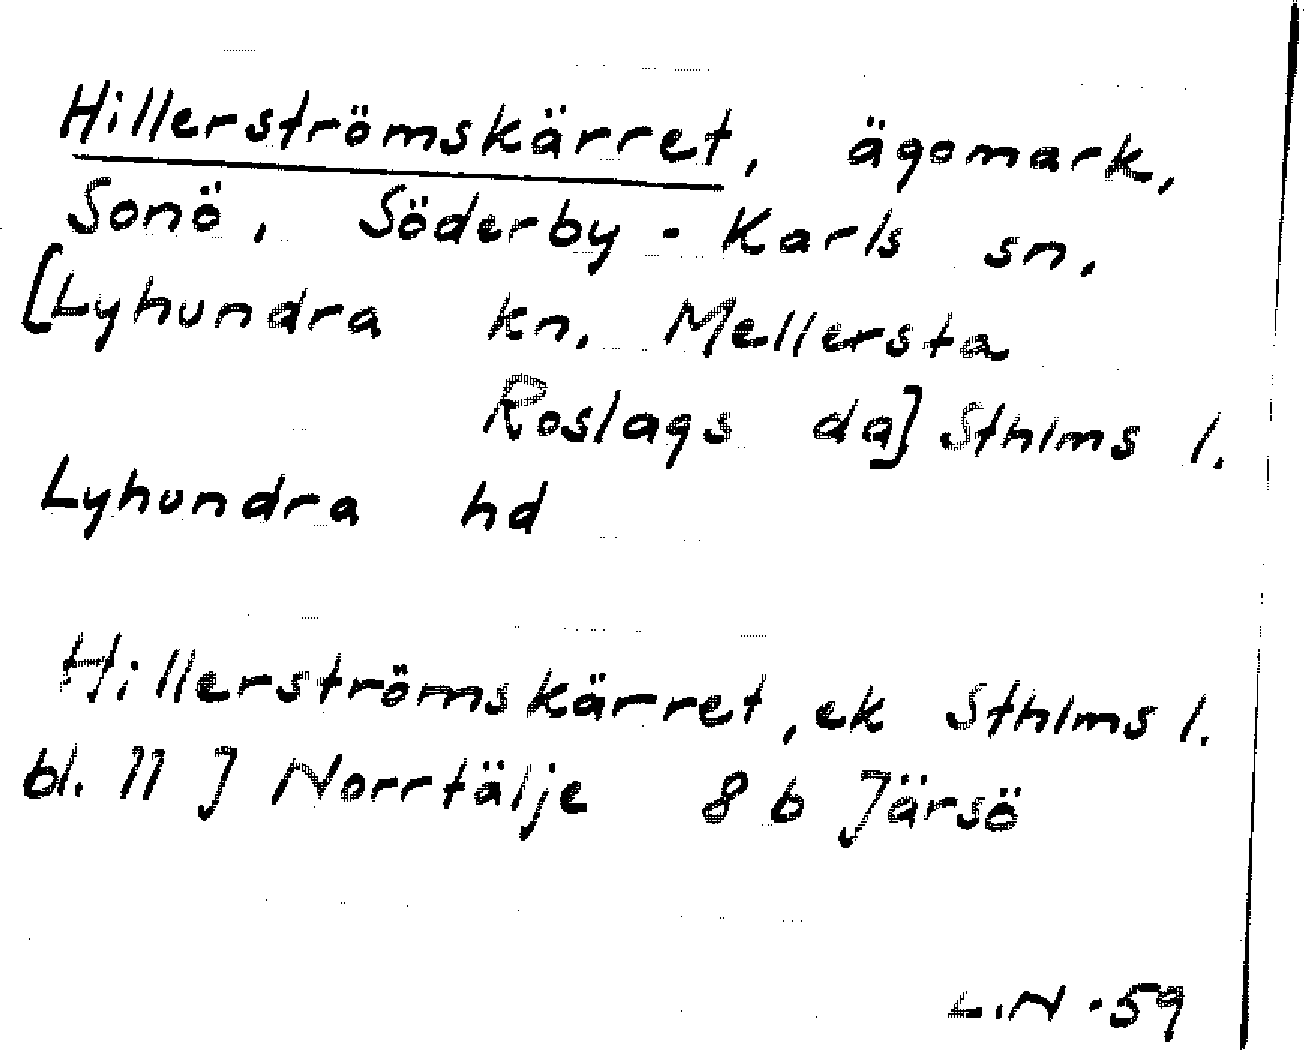 Hillerströmskärret, ägomark,
Sonö, Söderby-Karls sn.
[Lyhundra kn. Mellersta
Roslags da] Sthlms l.
Lyhundra hd
Hillerströmskärret, ek Sthlms l.
bl. 11 J Norrtälje 8 b Järsö
L.N -59